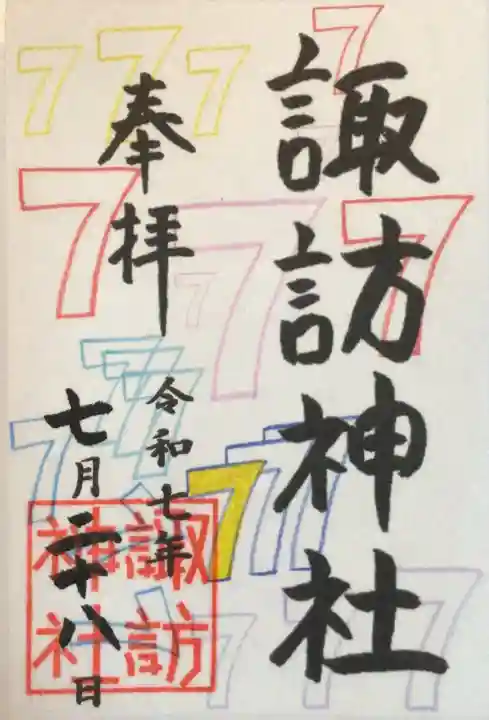 諏訪神社
奉拝
令和七年
七月二十八日
諏訪
神社
7 7 7 7
7 7 7 7 7
7 7 7 7
7 7 7 7 7
7 7 7 7